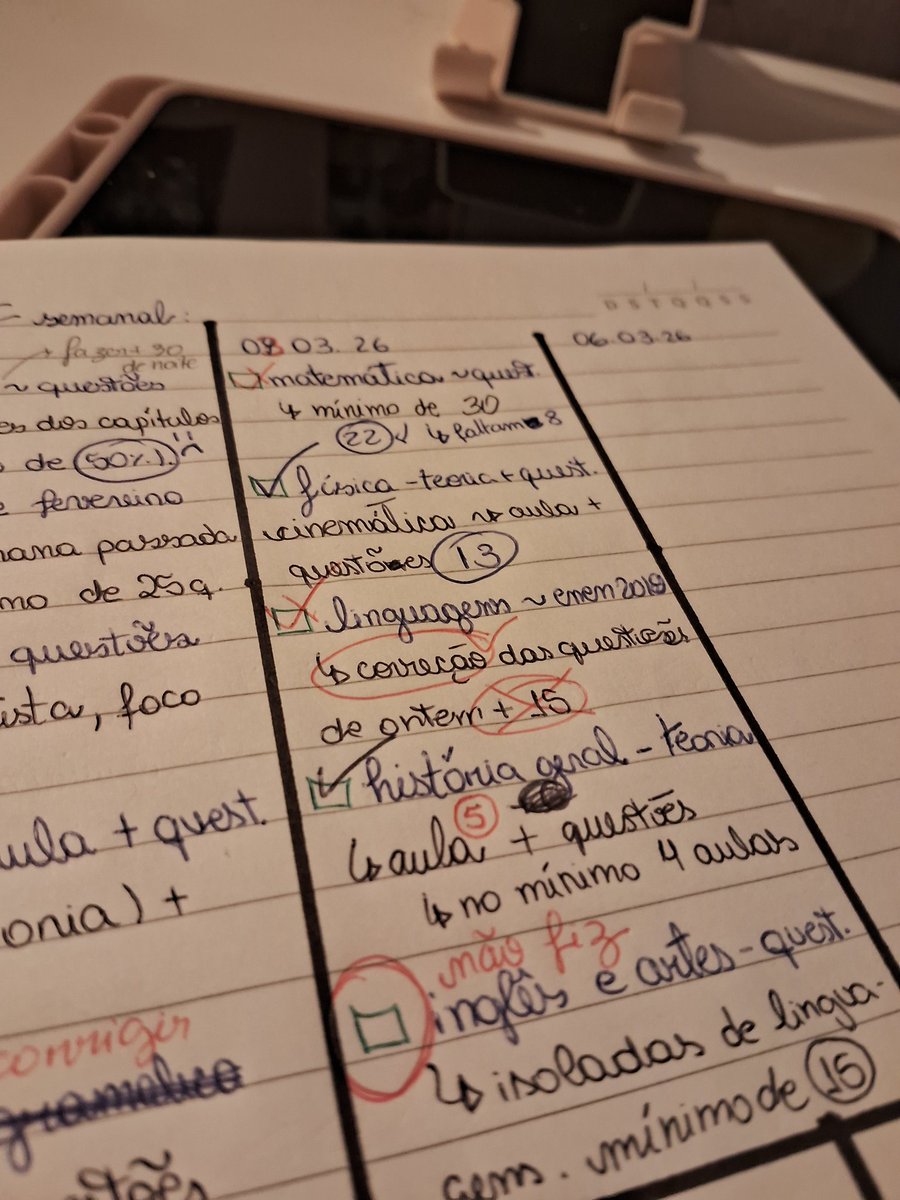 semanal:
+ fazer + 30
de mate
~ questões
es dos capítulos
de 50%
fevereiro
mana passada
mo de 25q.
questões
ista, foco
aula + quest.
onia) +
corrigir
gramática
08 03. 26
matemática ~ quest.
↳ mínimo de 30
22 ✓ ↳ faltam 8
física - teoria + quest.
cinemática ↝ aula +
questões 13
linguagens ~ enem 2018
↳ correção das questões
de ontem + 15
história geral - teoria
5
↳ aula + questões
↳ no mínimo 4 aulas
não fiz
inglês e artes - quest.
↳ isoladas de lingua-
gem. mínimo de 15
D S T Q Q S S
06.03.26